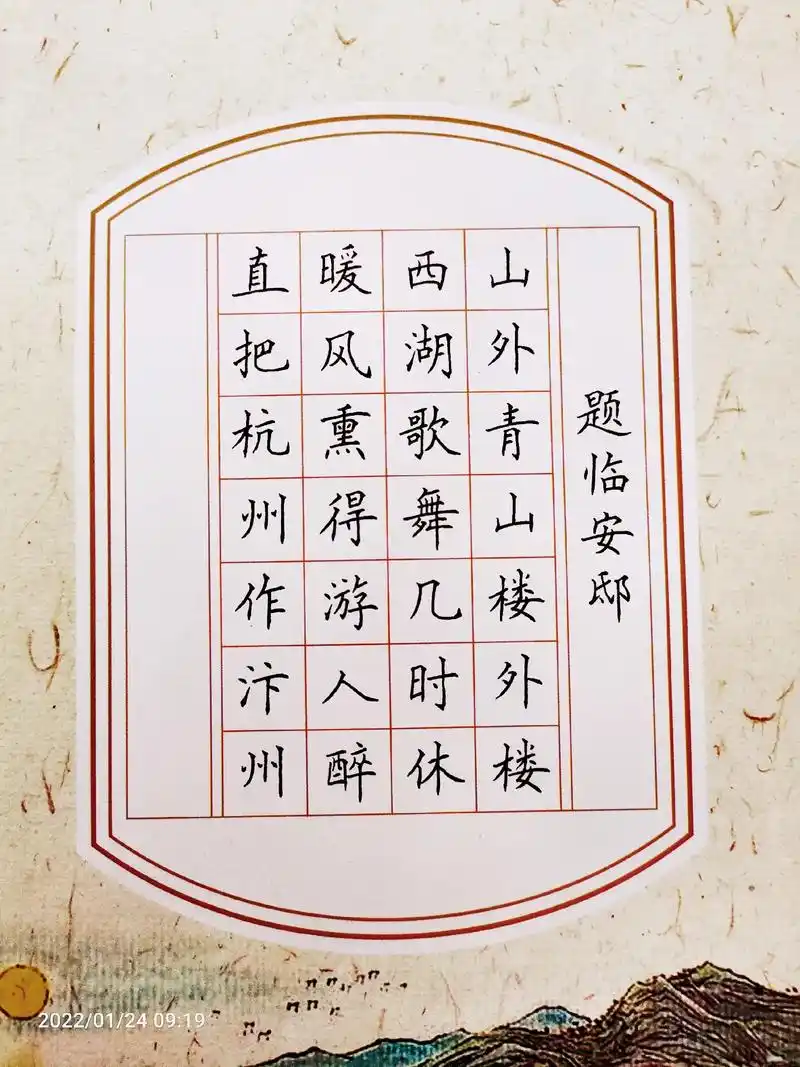 题临安邸
山外青山楼外楼
西湖歌舞几时休
暖风熏得游人醉
直把杭州作汴州
2022/01/24 09:19